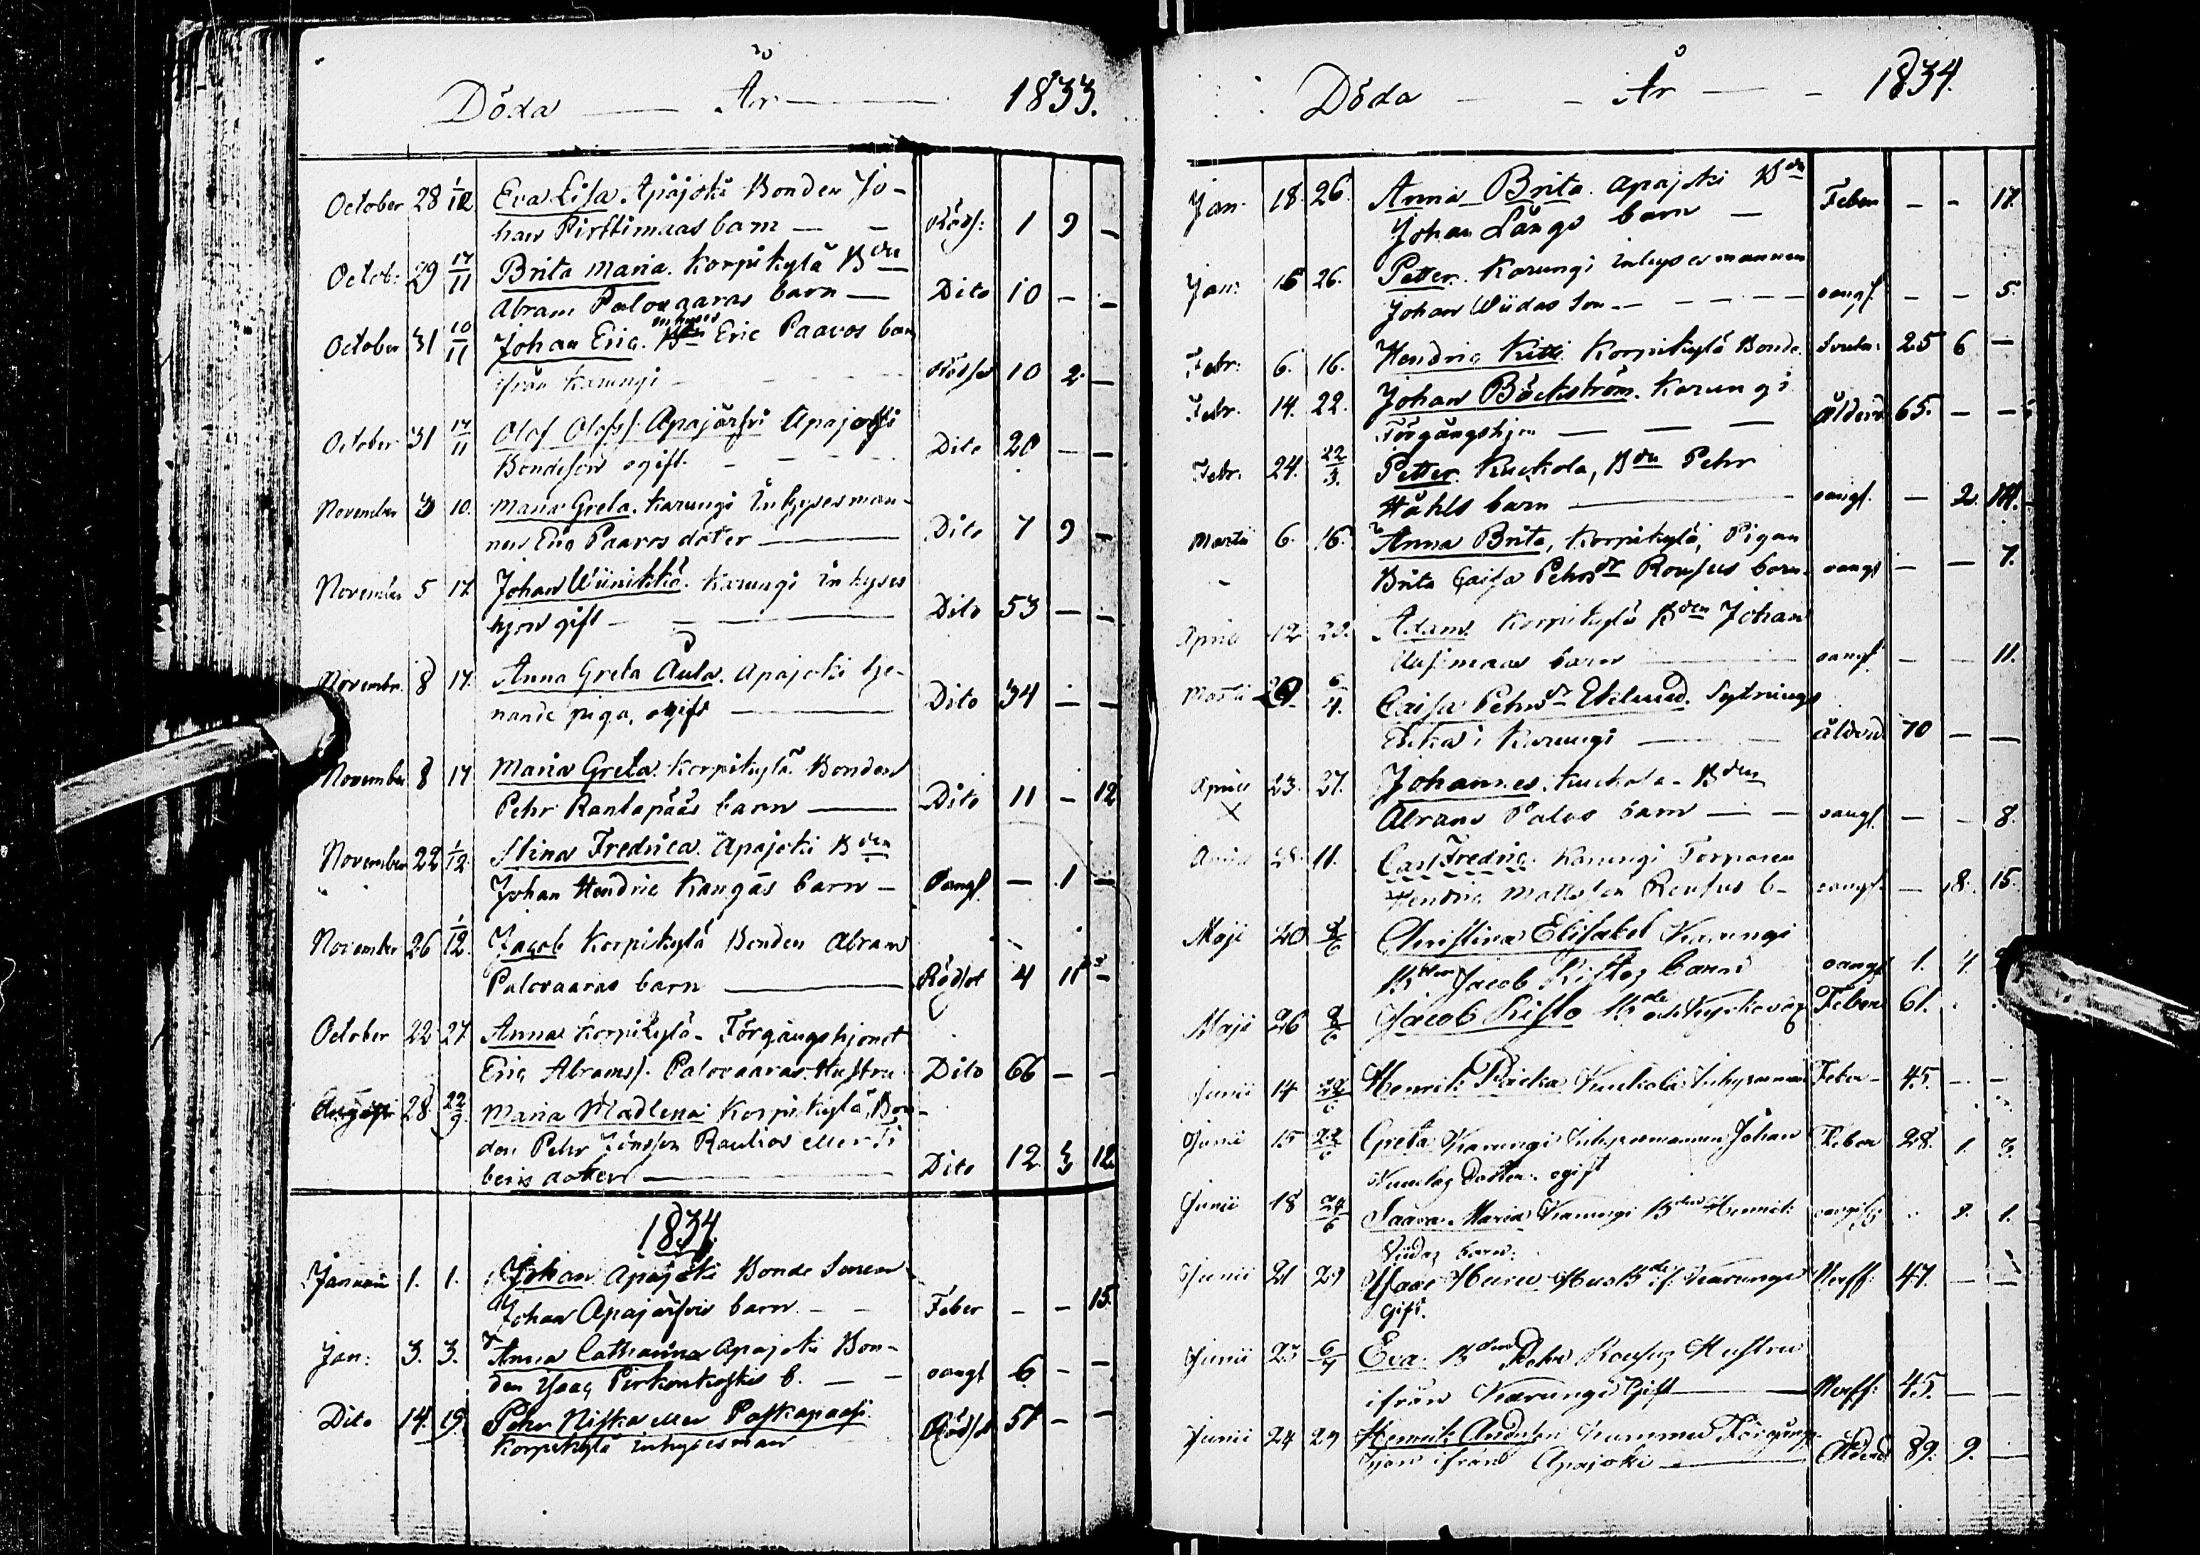 Döda — År — 1833.
October 28 1/12 Eva Lisa. Apajoki Bonden Jo-
han Pirttimaas barn — Rödsj: 1 9 —
Octob: 29 17/11 Brita Maria. Korpikylä Bden
Abram Palovaaras barn — Dito 10 — —
inhyses
October 31 10/11 Johan Eric. Eric Paavos barn
ifrån Karungi — Rödsot 10 2 —
October 31 17/11 Olof Olofss: Apajärfvi Apajoki
Bondeson ogift — Dito 20 — —
November 3 10. Maria Greta. Karungi Inhysesman-
nen Eric Paavos doter — Dito 7 9 —
November 5 17. Johan Wiinikka. Karungi Inhyses
hjon gift — Dito 53 — —
Novembr. 8 17. Anna Greta Aula. Apajoki tje-
nande piga, ogift — Dito 34 — —
November 8 17 Maria Greta. Korpikylä Bonden
Pehr Rantapääs barn — Dito 11 — 12
November 22 1/12 Stina Fredrica. Apajoki Bden
Johan Hendric Kangas barn — oangf. — 1 —
November 26 1/12. Jacob Korpikylä Bonden Abram
Palovaaras barn — Rödsot 4 11 —
October 22 27 Anna Korpikylä - Förgångshjonet
Eric Abramss. Palovaaras Hustru Dito 66 — —
Augusti 28. 22/9. Maria Madlena Korpikylä, Bon-
den Pehr Jönsson Raulios eller Si
beris doter — Dito 12. 3 12.
1834
Januarii 1. 1. Johan Apajoki Bonde Sonen
Johan Apajärfvis barn — Feber — — 15.
Jan: 3. 3. Anna Catharina Apajoki Bon-
den Isac Pirkonkoskis b. — oangf 6 — —
Dito 14. 19. Pehr Niska eller Paskapaasi
Korpikylä inhysesman Rödsot 51 — —
Döda — År — 1834.
Jan. 18. 26. Anna Brita. Apajoki Bden
Johan Långs barn — Feber — — 17.
Jan: 15 26. Petter. Karungi inhysesmannen
Johan Wiidas Son — oangf. — — 5.
Febr: 6. 16. Hendric Kitti. Korpikylä Bonde. 25 6 —
Febr. 14. 22. Johan Bäckström. Karungi
Förgångshjon — Ålderd. 65. — —
Febr. 24. 22/3. Petter. Kuckola, Bden Pehr
Ståhls barn — oangf. — 2. 14.
Martii 6. 16. Anna Brita, Korpikylä, Pigan
Brita Caisa Pehrsdr Roufus barn. oangf — — 7.
Aprill 12 20. Adam. Korpikylä Bden Johan
barn — oangf — — 11.
Martii 29 6/4. Caisa Pehrsdr Eklund. Sytnings
Enka i Karungi — ålderd. 70 — —
Aprill 23. 27. Johannes. Kuckola - Bden
x Abram Palos barn — oangf. — — 8.
28. 11. Carl Fredric. Karungi Torparen
Hendric Mattsson Roufus b — oangf. — 8. 15.
Maji 20 8/6 Christina Elisabet Karungi
Bden Jacob Kistos barn oangf 1. 4
Maji 26 8/6 Jacob Kisto Bde Feber 61.
Junii 14 22/6 Henrik Kuckola Inhysesman Feber — 45. — —
Junii 15 22/6 Greta Karungi Inhysesmannen Johan Feber 28. 1. 3.
Dotter. ogift
Junii 18 24/6 Saara Maria Karungi Bden Henrik oangifv. 1.
Viidas barn.
Junii 21 29 Isac Bde if. Karungi Nerff. 47. — —
Gift.
Junii 23 6/7 Eva Bden Pehr Roufus Hustru
ifrån Karungi Gift — Nerff: 45. — —
Junii 24 29 Henrik Andersson Förgångs-
hjon ifrån Apajoki — Ålderd 89. 9. —